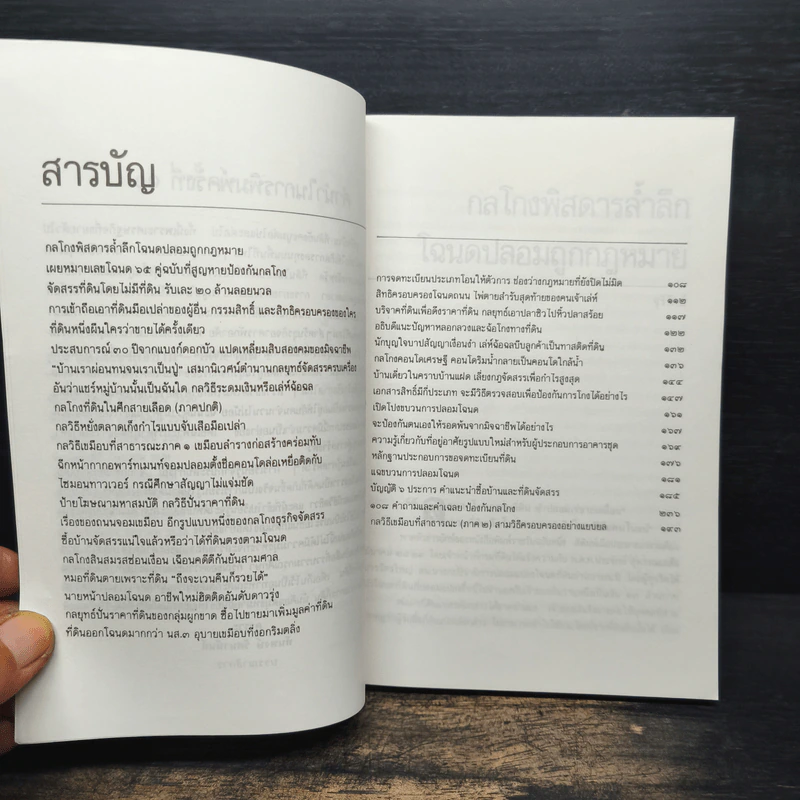 สารบัญ
กลโกงพิสดารล้ำลึกโฉนดปลอมถูกกฎหมาย
เผยหมายเลขโฉนด ๖๕ คู่ฉบับที่สูญหายป้องกันกลโกง
จัดสรรที่ดินโดยไม่มีที่ดิน รับเละ ๒๐ ล้านลอยนวล
การเข้าถือเอาที่ดินมือเปล่าของผู้อื่น กรรมสิทธิ์ และสิทธิครอบครองของใคร
ที่ดินหนึ่งผืนใครว่าขายได้ครั้งเดียว
ประสบการณ์ ๓๐ ปีจากแบงก์ดอกบัว แปดเหลี่ยมสิบสองคมของมิจฉาชีพ
“บ้านเราผ่อนทนจนเราเป็นปู่” เสมานิเวศน์ตำนานกลยุทธ์จัดสรรครบเครื่อง
อันว่าแชร์หมู่บ้านนั้นเป็นฉันใด กลวิธีระดมเงินหรือเล่ห์ฉ้อฉล
กลโกงที่ดินในศึกสายเลือด (ภาคปกติ)
กลวิธีหยั่งตลาดเก็งกำไรแบบจับเสือมือเปล่า
กลวิธีเขมือบที่สาธารณะภาค ๑ เขมือบลำรางก่อสร้างคร่อมทับ
ฉีกหน้ากากอพาร์ทเมนท์จอมปลอมตั้งชื่อคอนโดล่อเหยื่อติดกับ
ไซมอนทาวเวอร์ กรณีศึกษาสัญญาไม่แจ่มชัด
ป้ายโฆษณามหาสมบัติ กลวิธีปั่นราคาที่ดิน
เรื่องของถนนจอมเขมือบ อีกรูปแบบหนึ่งของกลโกงธุรกิจจัดสรร
ซื้อบ้านจัดสรรแน่ใจแล้วหรือว่าได้ที่ดินตรงตามโฉนด
กลโกงสินสมรสซ่อนเงื่อน เฉือนคดีตีกันยันสามศาล
หมอที่ดินตายเพราะที่ดิน “ถึงจะเวนคืนก็รวยได้”
นายหน้าปลอมโฉนด อาชีพใหม่ฮิตติดอันดับดาวรุ่ง
กลยุทธ์ปั่นราคาที่ดินของกลุ่มผูกขาด ซื้อไปขายมาเพิ่มมูลค่าที่ดิน
ที่ดินออกโฉนดมากกว่า นส.๓ อุบายเขมือบที่งอกริมตลิ่ง
การจดทะเบียนประเภทโอนให้ตัวการ ช่องว่างกฎหมายที่ยังปิดไม่มิด ๑๐๘
สิทธิครอบครองโฉนดถนน ไพ่ตายสำรับสุดท้ายของคนเจ้าเล่ห์ ๑๑๒
บริจาคที่ดินเพื่อดึงราคาที่ดิน กลยุทธ์เอาปลาซิวไปหิ้วปลาสร้อย ๑๑๗
อธิบดีแนะปัญหาหลอกลวงและฉ้อโกงทางที่ดิน ๑๒๒
นักบุญใจบาปสัญญาเงื่อนงำ เล่ห์ฉ้อฉลบีบลูกค้าเป็นทาสติดที่ดิน ๑๓๒
กลโกงคอนโดเศรษฐี คอนโดริมน้ำกลายเป็นคอนโดใกล้น้ำ ๑๓๖
บ้านเดี่ยวในคราบบ้านแฝด เลี่ยงกฎจัดสรรเพื่อกำไรสูงสุด ๑๔๔
เอกสารสิทธิ์มีกี่ประเภท จะมีวิธีตรวจสอบเพื่อป้องกันการโกงได้อย่างไร ๑๔๗
เปิดโปงขบวนการปลอมโฉนด ๑๖๑
จะป้องกันตนเองให้รอดพ้นจากมิจฉาชีพได้อย่างไร ๑๖๗
ความรู้เกี่ยวกับที่อยู่อาศัยรูปแบบใหม่สำหรับผู้ประกอบการอาคารชุด ๑๖๙
หลักฐานประกอบการขอจดทะเบียนที่ดิน ๑๗๖
แฉขบวนการปลอมโฉนด ๑๘๑
บัญญัติ ๖ ประการ คำแนะนำซื้อบ้านและที่ดินจัดสรร ๑๘๕
๑๐๘ คำถามและคำเฉลย ป้องกันกลโกง ๒๓๖
กลวิธีเขมือบที่สาธารณะ (ภาค ๒) สามวิธีครอบครองอย่างแยบยล ๑๙๓
กลโกงพิสดารล้ำลึก
โฉนดปลอมถูกกฎหมาย